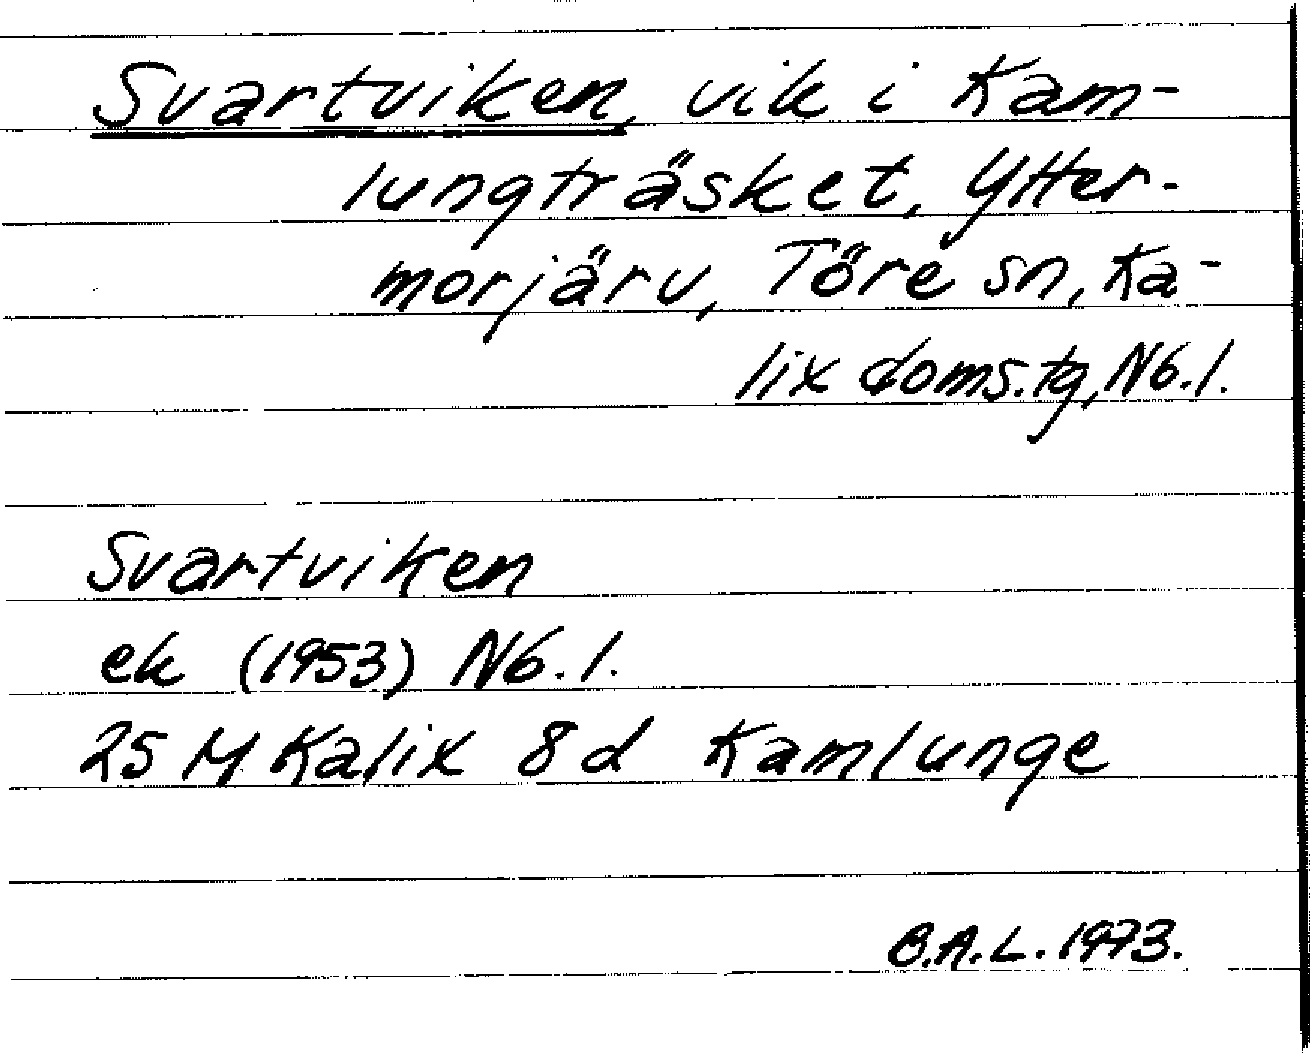 Svartviken, vik i Kam-
lungträsket, Ytter-
morjärv, Töre sn, Ka-
lix doms.tg, Nb.l.
Svartviken
ek (1953) Nb.l.
25 M Kalix 8d Kamlunge
B.A.L. 1973.